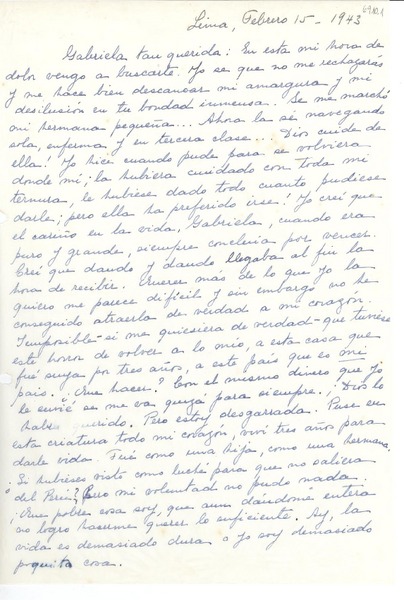 Lima, Febrero 15 - 1943
Gabriela tan querida: En esta mi hora de
dolor vengo a buscarte. Yo se que no me rechazarás
y me hace bien descansar mi amargura y mi
desilusión en tu bondad inmensa. Se me marchó
mi hermana pequeña... Ahora la sé navegando
sola, enferma y en tercera clase... Dios cuide de
ella! Yo hice cuando pude para se volviera
donde mí; la hubiera cuidado con toda mi
ternura, le hubiese dado todo cuanto pudiese
darle; pero ella ha preferido irse! Yo creí que
el cariño en la vida, Gabriela, cuando era
puro y grande, siempre concluía por vencer.
Creí que dando y dando llegaba al fin la
hora de recibir. Querer más de lo que yo la
quiero me parece difícil y sin embargo no he
conseguido atraerla de verdad a mi corazón.
Imposible - si me quisiera de verdad - que tuviese
este horror de volver a lo mío, a esta casa que
fué suya por tres años, a este país que es mi
país. ¿Que hacer? Con el mismo dinero que yo
le envié se me va, quizá para siempre. ¡Dios lo
habrá querido. Pero estoy desgarrada. Puse en
esta criatura todo mi corazón, viví tres años para
darle vida. Fué como una hija, como una hermana.
¡Si hubieses visto como luché para que no saliera
del Perú? Pero mi voluntad no pudo nada.
¡Que pobre cosa soy, que aun dándome entera
no logro hacerme querer lo suficiente. Ay, la
vida es demasiado dura o yo soy demasiado
poquita cosa.